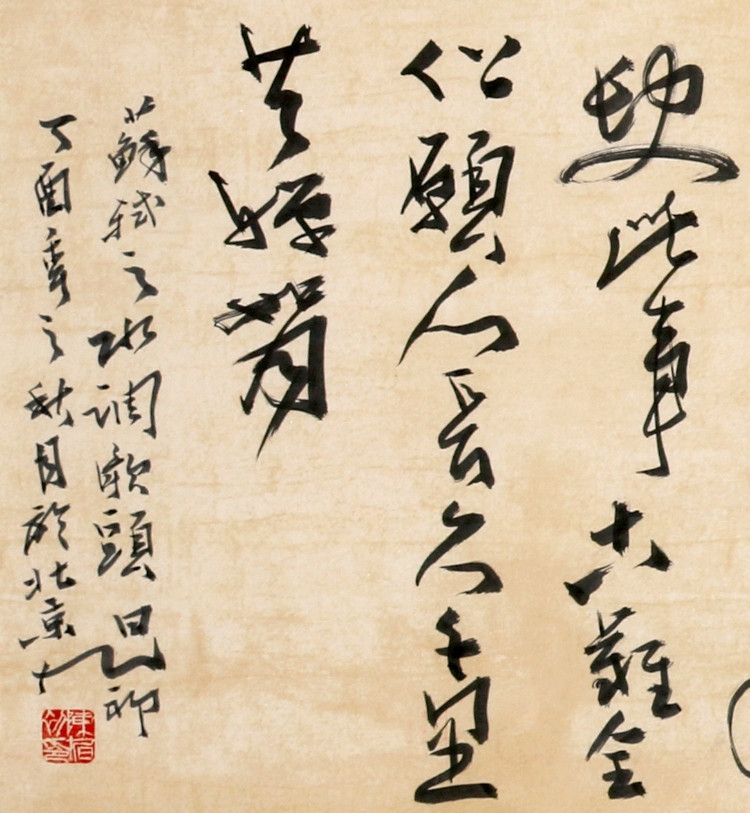 缺此事古難全
但願人長久千里
共嬋娟
蘇軾之水調歌頭
丁酉年之秋月於北京